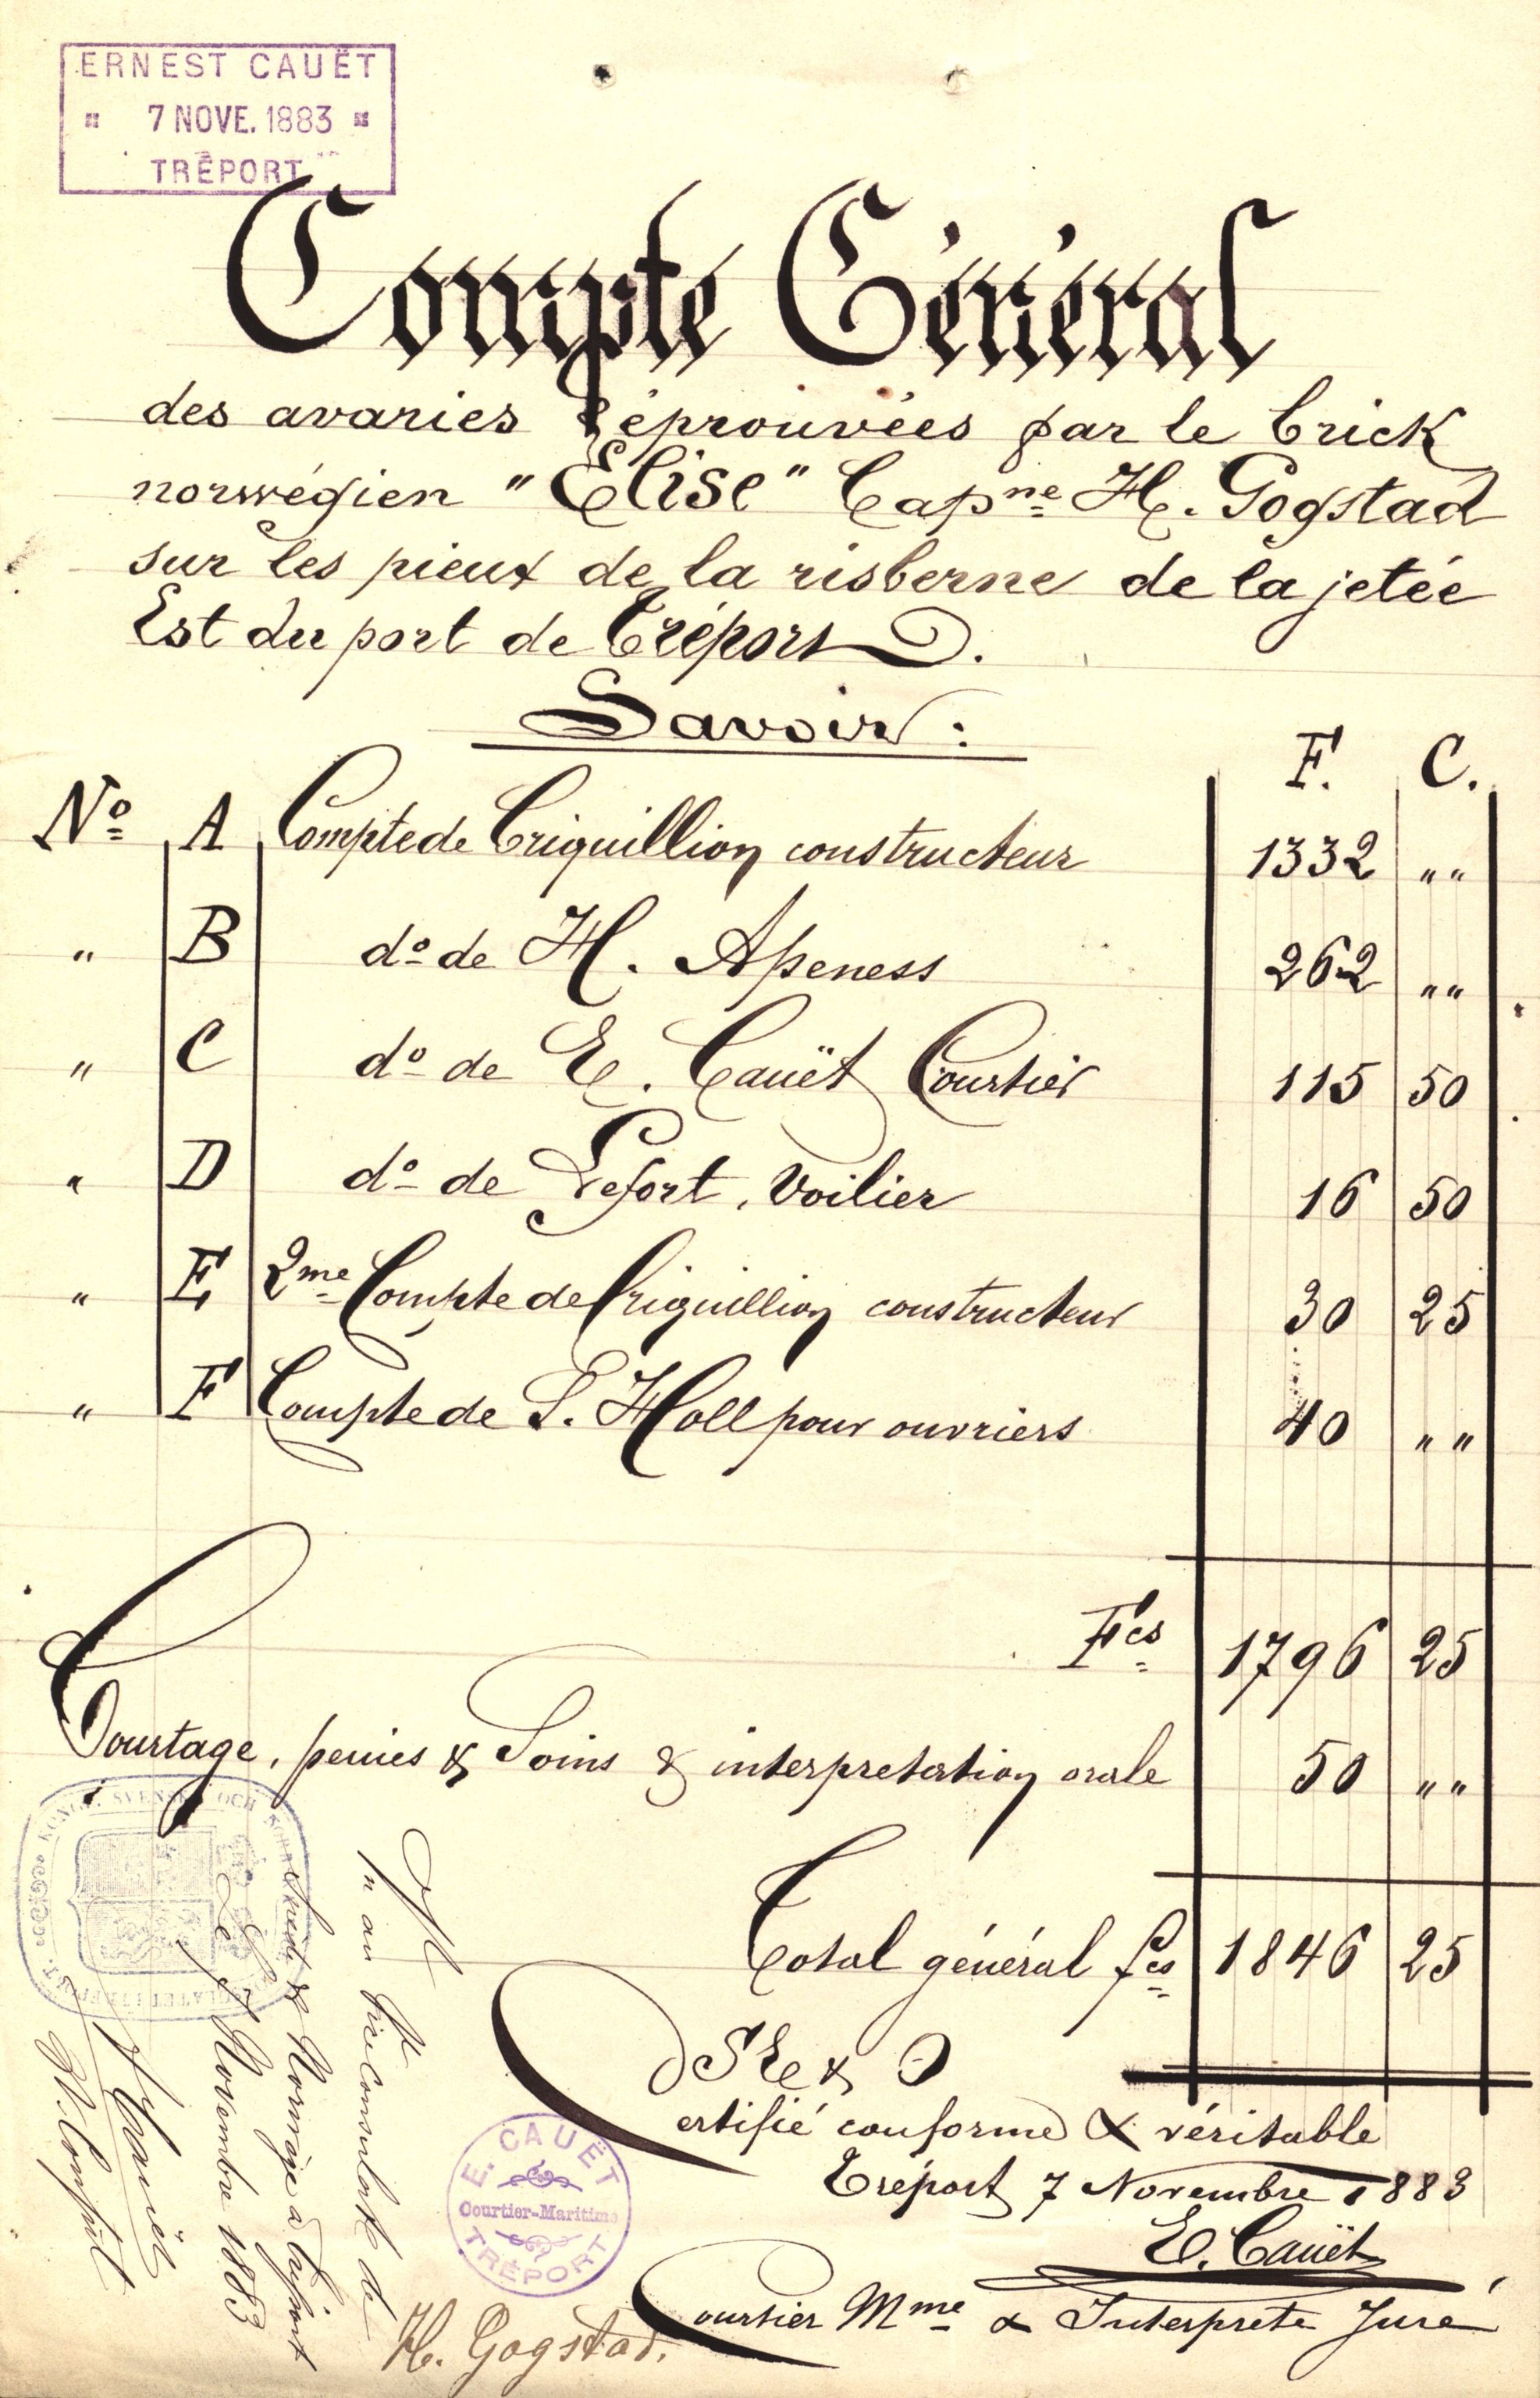 ERNEST CAUËT
" 7 NOVE. 1883 "
TRÉPORT
Compte Général
des avaries éprouvées par le brick
norwégien "Elise" Cap<sup>ne</sup> H. Gogstad
sur les pieux de la risberne de la jetée
Est du port de Tréport.
Savoir:
F. C.
Nº A Compte de Criquillion constructeur 1332 ""
" B dº de H. Apeness 262 ""
" C dº de E. Cauët Courtier 115 50
" D dº de Lefort, Voilier 16 50
" E 2me Compte de Criquillion constructeur 30 25
" F Compte de L. Holl pour ouvriers 40 ""
Fcs 1796 25
Courtage, peines & Soins & interpretation orale 50 ""
Total général fcs 1846 25
S E & O
Certifié conforme & véritable
Tréport 7 Novembre 1883
E. Cauët
Courtier Mme & Interprete Juré
E. CAUËT
Courtier-Maritime
TRÉPORT
H. Gogstad.
au Vice Consulat de
Suède & Norvège à Tréport
Le 7 Novembre 1883
KONGL. SVENSKA OCH